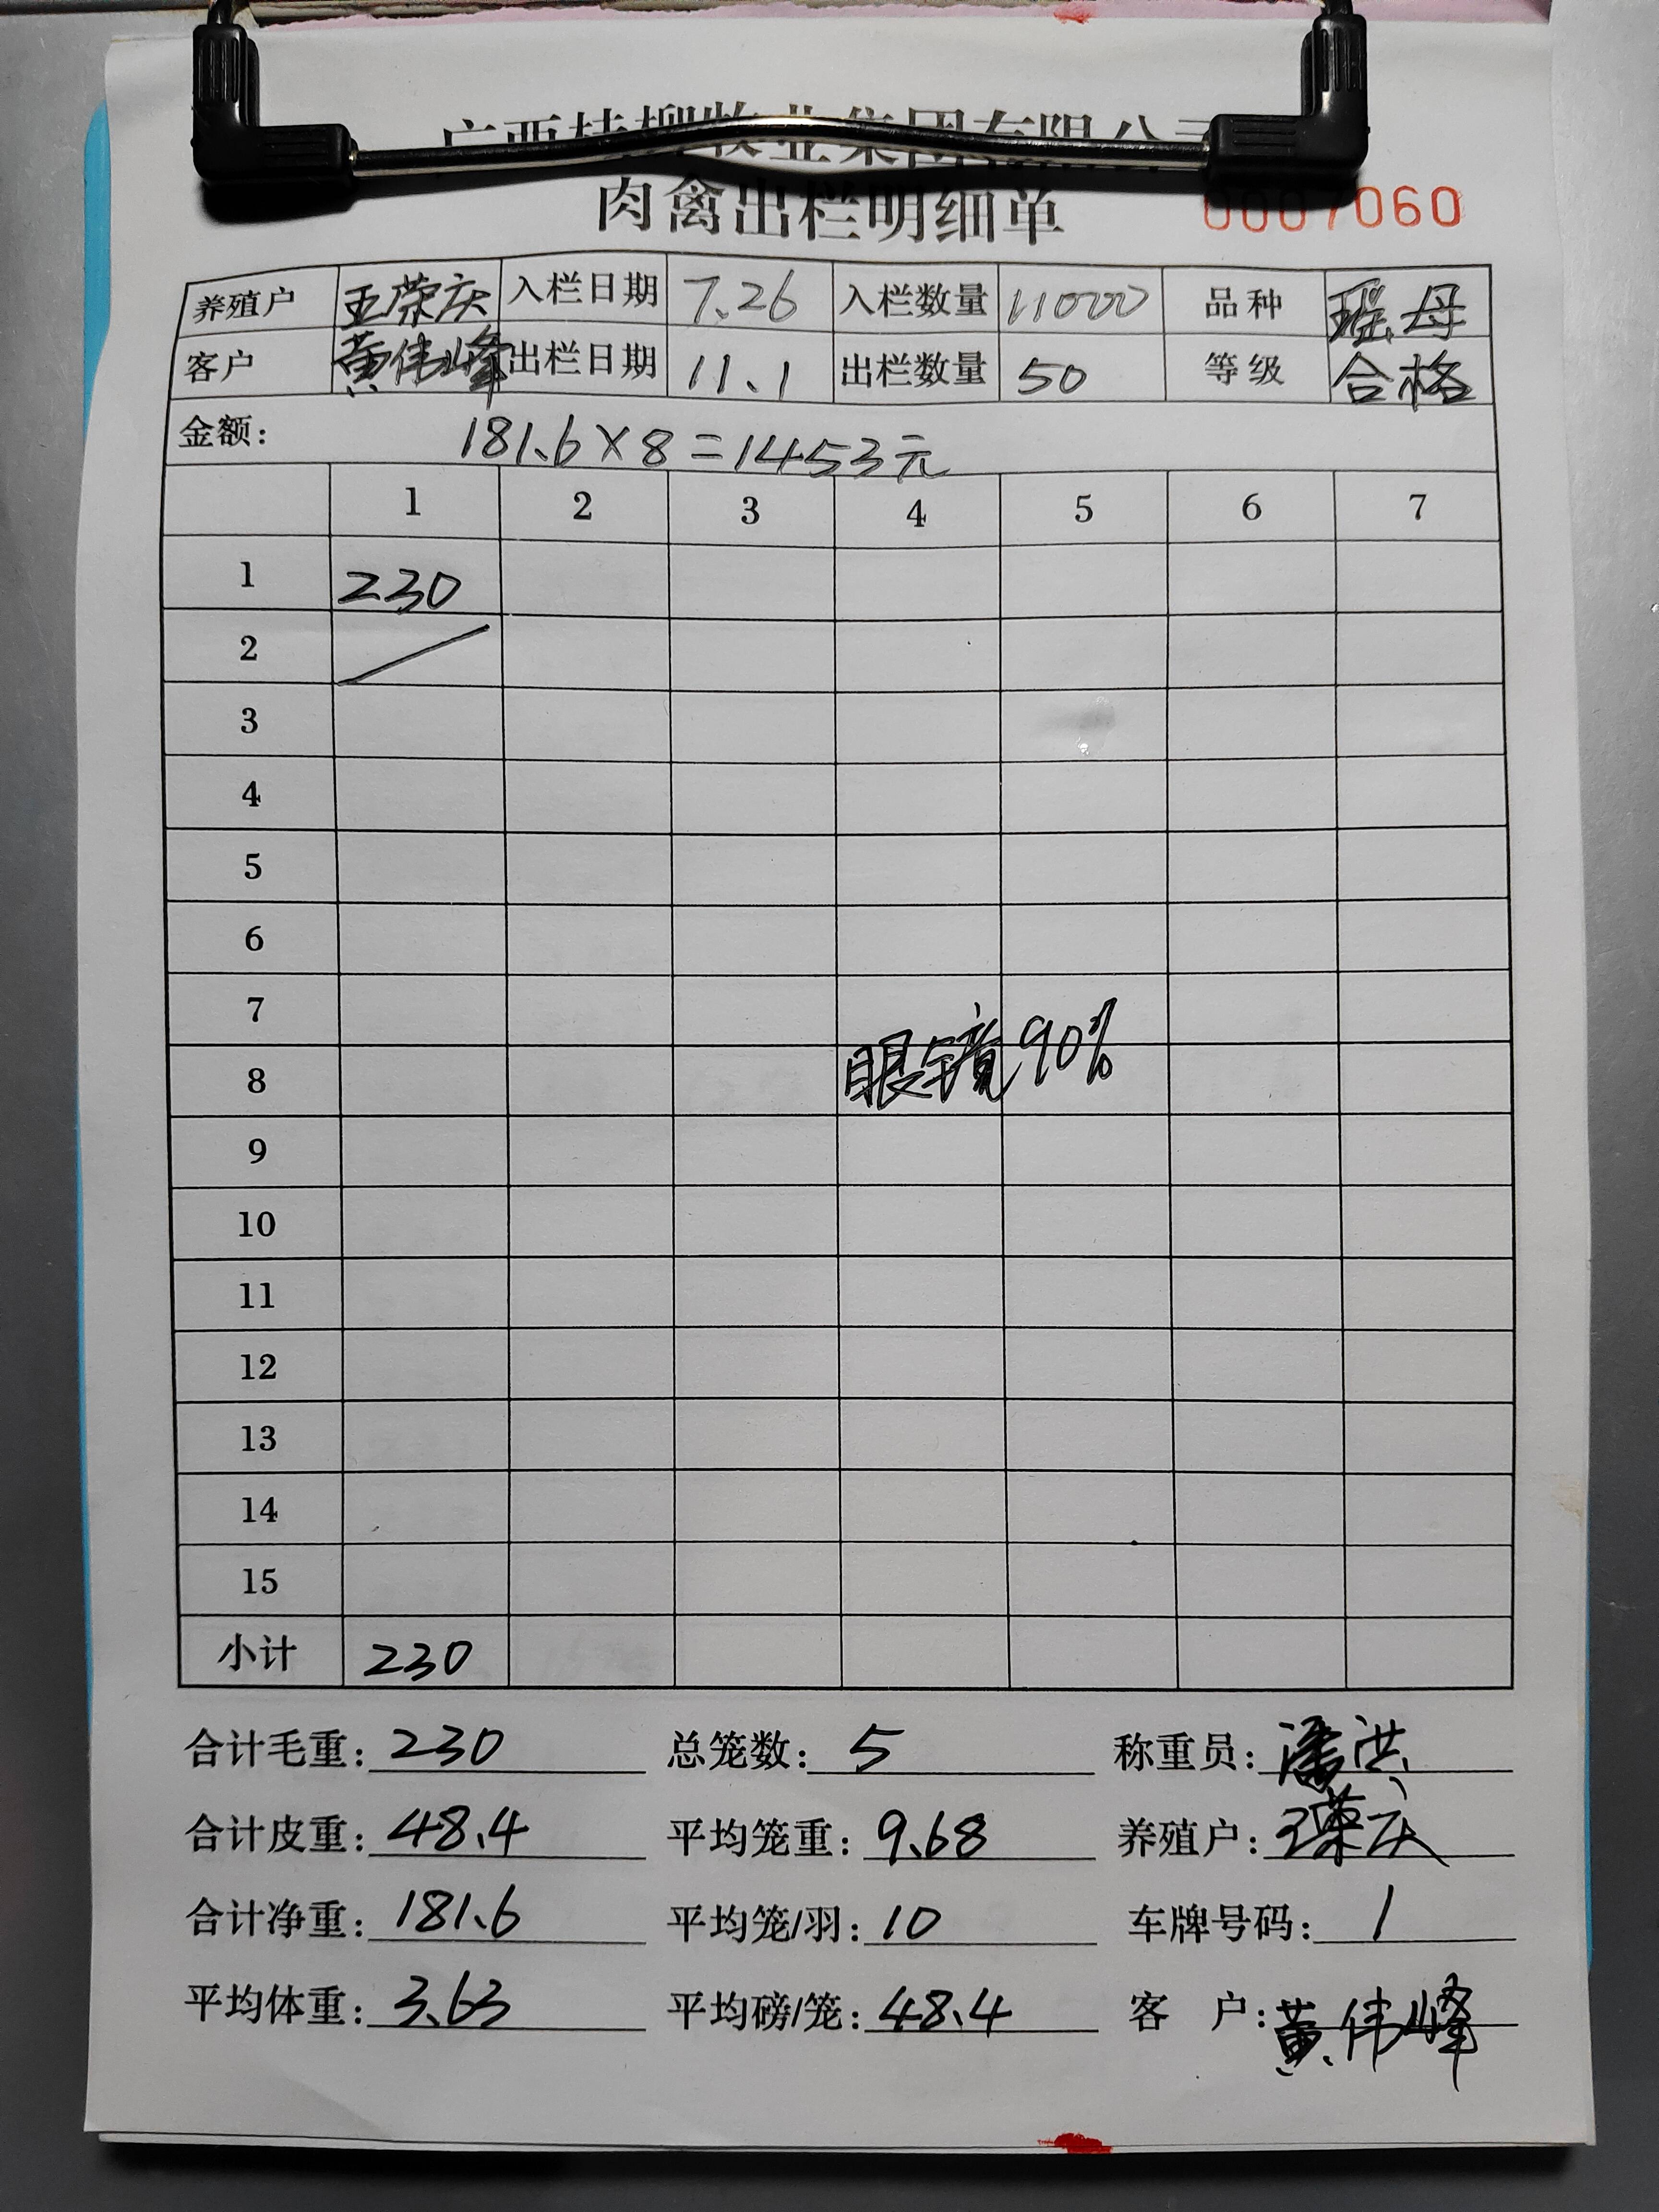 广西桂柳牧业集团有限公司
肉禽出栏明细单 0007060
养殖户 王荣庆 入栏日期 7.26 入栏数量 11000 品种 瑶母
客户 黄伟峰 出栏日期 11.1 出栏数量 50 等级 合格
金额: 181.6×8=1453元
1 2 3 4 5 6 7
1 230
2 /
3
4
5
6
7
8 眼镜90%
9
10
11
12
13
14
15
小计 230
合计毛重: 230 总笼数: 5 称重员: 潘洪
合计皮重: 48.4 平均笼重: 9.68 养殖户: 王荣庆
合计净重: 181.6 平均笼/羽: 10 车牌号码: 1
平均体重: 3.63 平均磅/笼: 48.4 客 户: 黄伟峰